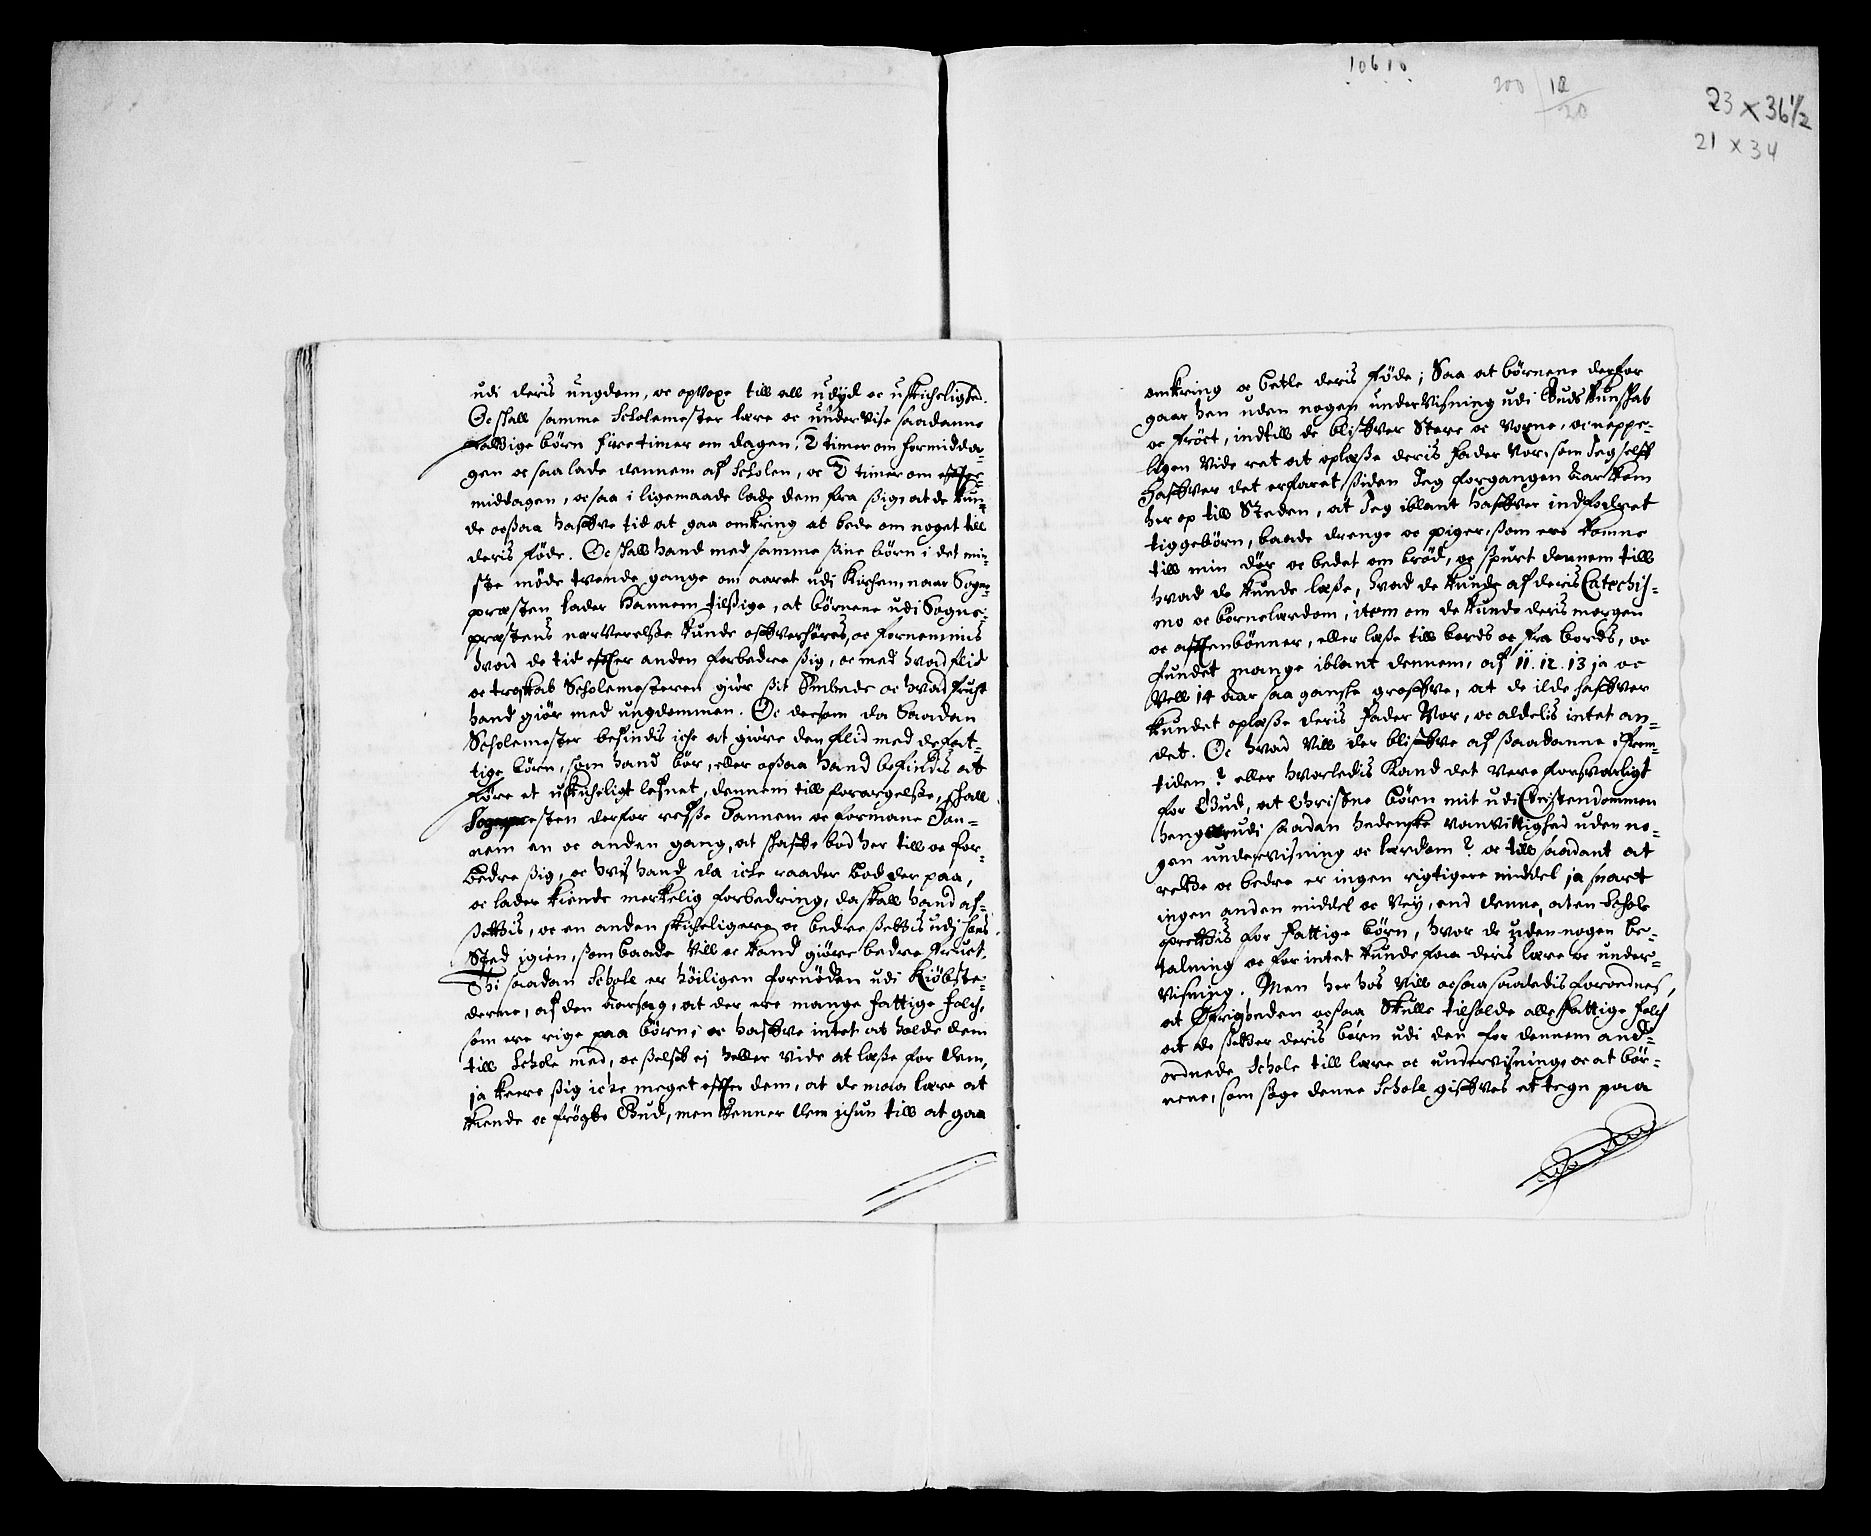 10610
200 | 18
20
23 x 36 1/2
21 x 34
udi deris ungdom, oc opvoxe till all udÿd oc uskichelighed.
Oc skall samme Scholemester lære oc undervise saadanne
fattige börn fire timer om dagen, 2 timer om formidda-
gen oc saa lade dennem af Scholen, oc 2 timer om effter-
middagen, oc saa i ligemaade lade dem fra sig, at de kun-
de ocsaa haffve tid at gaa omkring at bede om noget till
deris føde. Oc skall hand med samme sine börn i det min-
ste møde tvende gange om aaret udi Kirchen, naar Sogne-
præsten lader hannem tilsige, at börnene udi Sogne-
præstens nærverelse kunde offverhöres, oc fornemmis
hvad de tid effter anden forbedre sig, oc med hvad flid
oc troskab Scholemesteren giør sit Embede oc hvad frugt
hand giør med ungdommen. Oc dersom da Saadan
Scholemester befindis iche at giøre den flid med de fat-
tige börn, som hand bör, eller ocsaa hand befindis at
føre et uskicheligt lefnet, dennem till forargelse, skall
Sognepræsten derfor refse Hannem oc formane Han-
nem en oc anden gang, at skaffe bod her till oc for-
bedre sig, oc hvis hand da iche raader bod der paa,
oc lader kiende merkelig forbedring, da skall hand af-
settis, oc en anden skicheligere oc bedre settis udj hans
Sted igien, som baade vill oc kand giøre bedre fruct.
Thi saadan Schole er höiligen fornöden udi Kiöbste-
derne, af den aarsag, at der ere mange fattige folch,
som ere rige paa börn, oc haffve intet at holde dem
till Schole med, oc selfb ej heller vide at læse for dem,
ja keere sig iche meget effter dem, at de maa lære at
kiende oc frögte Gud, men venner dem ichun till at gaa
omkring oc betle deris føde; Saa at börnene derfor
gaar hen uden nogen undervisning udi Guds kunskab
oc fröct, indtill de bliffver Store oc voxne, oc neppe-
ligen vide ret at oplæse deris Fader Vor, som Jeg selff
haffver det erfaret siden Jeg forgangen Aar kom
her op till Steden, at Jeg iblant haffver indfodret
tiggebörn, baade drenge oc piger, som ere komne
till min dör oc bedet om bröd, oc spurt dennem till
hvad de kunde læse, hvad de kunde af deris Catechis-
mo oc börnelærdom, item om de kunde deris morgen
oc afftenbönner, eller læse till bords oc fra bords, oc
fundet mange iblant dennem, af 11. 12. 13 ja oc
vell 14 aar saa ganske groffve, at de ilde haffver
kundet oplæse deris Fader Vor, oc aldelis intet an-
det. Oc hvad vill der bliffve af saadanne i frem-
tiden? eller hvorledis kand det vere forsvarligt
for Gud, at Christne börn mit udi Christendommen
henge udi saadan hedenske vanvittighed uden no-
gen undervisning oc lærdom? oc till saadant at
rette oc bedre er ingen rigtigere middel ja snart
ingen anden middel oc vey, end denne, at en Schole
oprettis for fattige börn, hvor de uden nogen be-
talning oc for intet kunde faa deris lære oc under-
visning. Men her hos vill ocsaa saaledis forordnes,
at Öfrigheden ocsaa Skulle tilholde alle fattige folch
at de setter deris börn udi den for dennem and-
ordnede Schole till lære oc undervisning, oc at bör-
nene, som søge denne Schole giffves et tegn paa